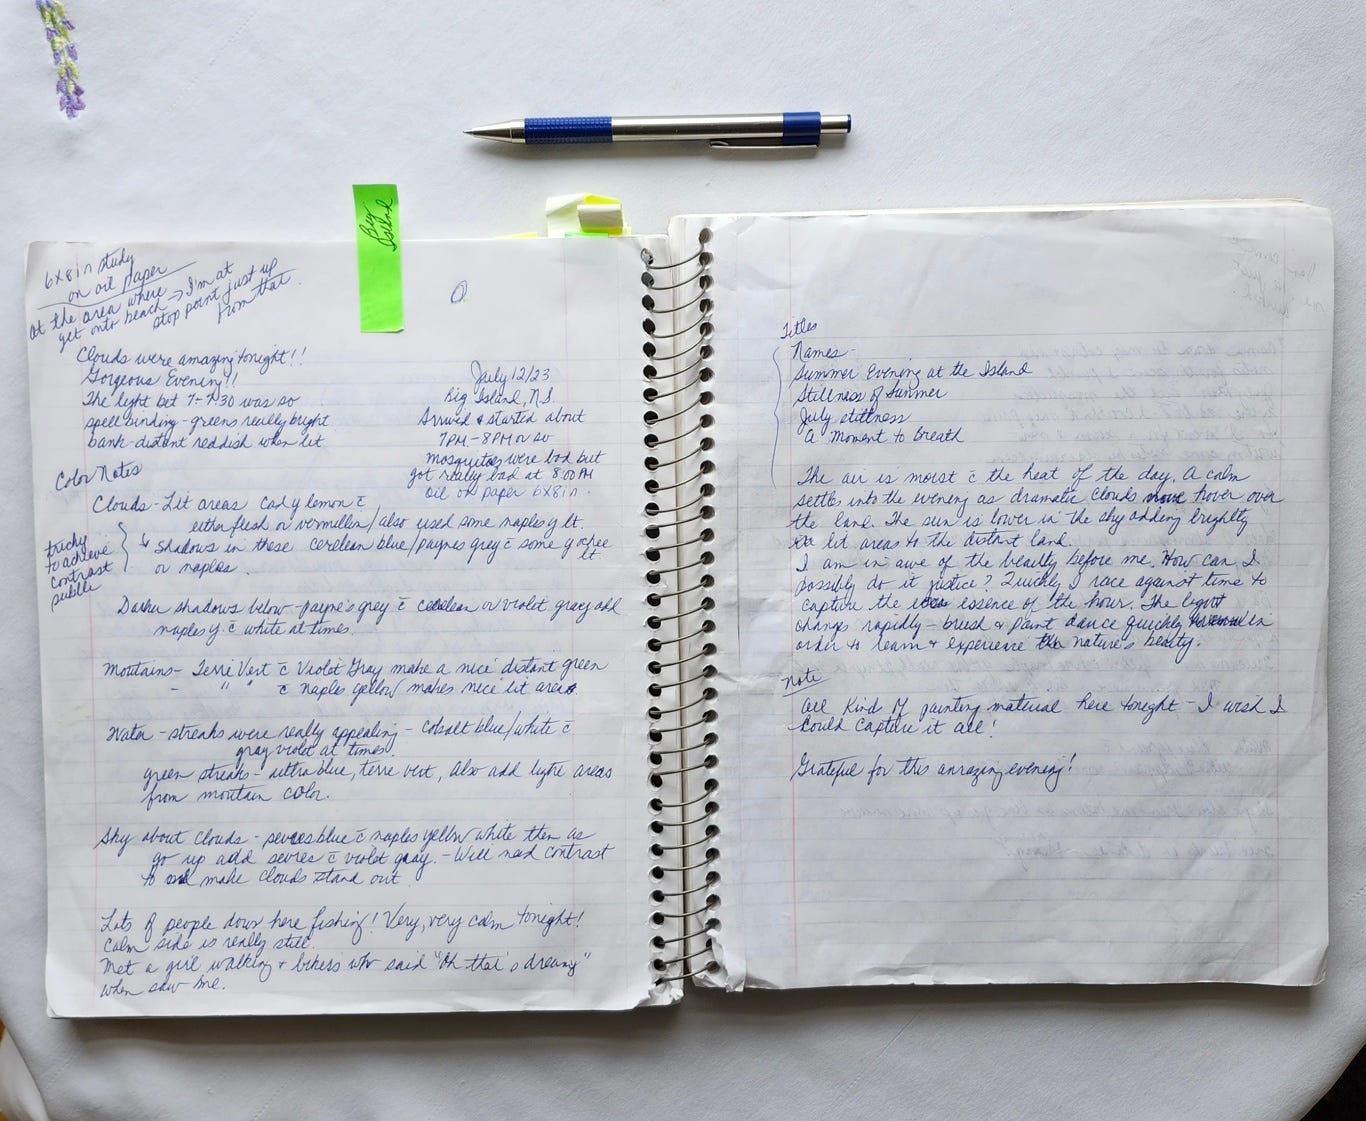 Big
Island
6x8in study
on oil paper
at the area where → I'm at
get onto beach stop point just up
from that.
Clouds were amazing tonight!!
Gorgeous Evening!!
The light bet 7-7:30 was so
spellbinding - greens really bright
bank-distant reddish when lit
July 12/23
Big Island, N.S.
Arrived & started about
7PM - 8PM or so
mosquitoes were bad but
got really bad at 8:00PM
oil on paper 6x8in.
Color Notes
Clouds - Lit areas cad y lemon c̄
either flesh or vermellen/also used some naples y lt.
↳ shadows in these cerelean blue/paynes grey c̄ some y ochre
lt
or naples.
tricky
to achieve
contrast
subtle
Darker shadows below - payne's grey c̄ cerelean or violet gray add
naples y c̄ white at times.
Moutains - Terre Vert c̄ Violet Gray make a nice distant green
- " " " c̄ naples yellow makes nice lit areas.
Water - streaks were really appealing - cobalt blue/white c̄
gray violet at times
green streaks - ultra blue, terre vert, also add lgtre areas
from moutain color.
Sky about clouds - sevres blue c̄ naples yellow white then as
go up add sevres c̄ violet gray. - Will need contrast
to make clouds stand out.
Lots of people down here fishing! Very, very calm tonight!
Calm side is really still.
Met a girl walking & bikers who said "Oh that's dreamy"
when saw me.
Titles
Names -
Summer Evening at the Island
Stillness of Summer
July stillness
A Moment to Breath
The air is moist c̄ the heat of the day. A calm
settles into the evening as dramatic clouds move hover over
the land. The sun is lower in the sky adding brightly
lit areas to the distant land.
I am in awe of the beauty before me. How can I
possibly do it justice? Quickly I race against time to
capture the essence of the hour. The light
changes rapidly - brush & paint dance quickly in
order to learn & experience the nature's beauty.
Note
All kind of painting material here tonight - I wish I
could capture it all!
Grateful for this amazing evening!